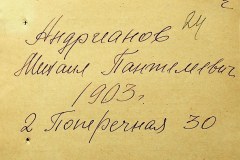 24
Андрианов
Михаил Пантелеевич
1903 г.
2 Поперечная 30